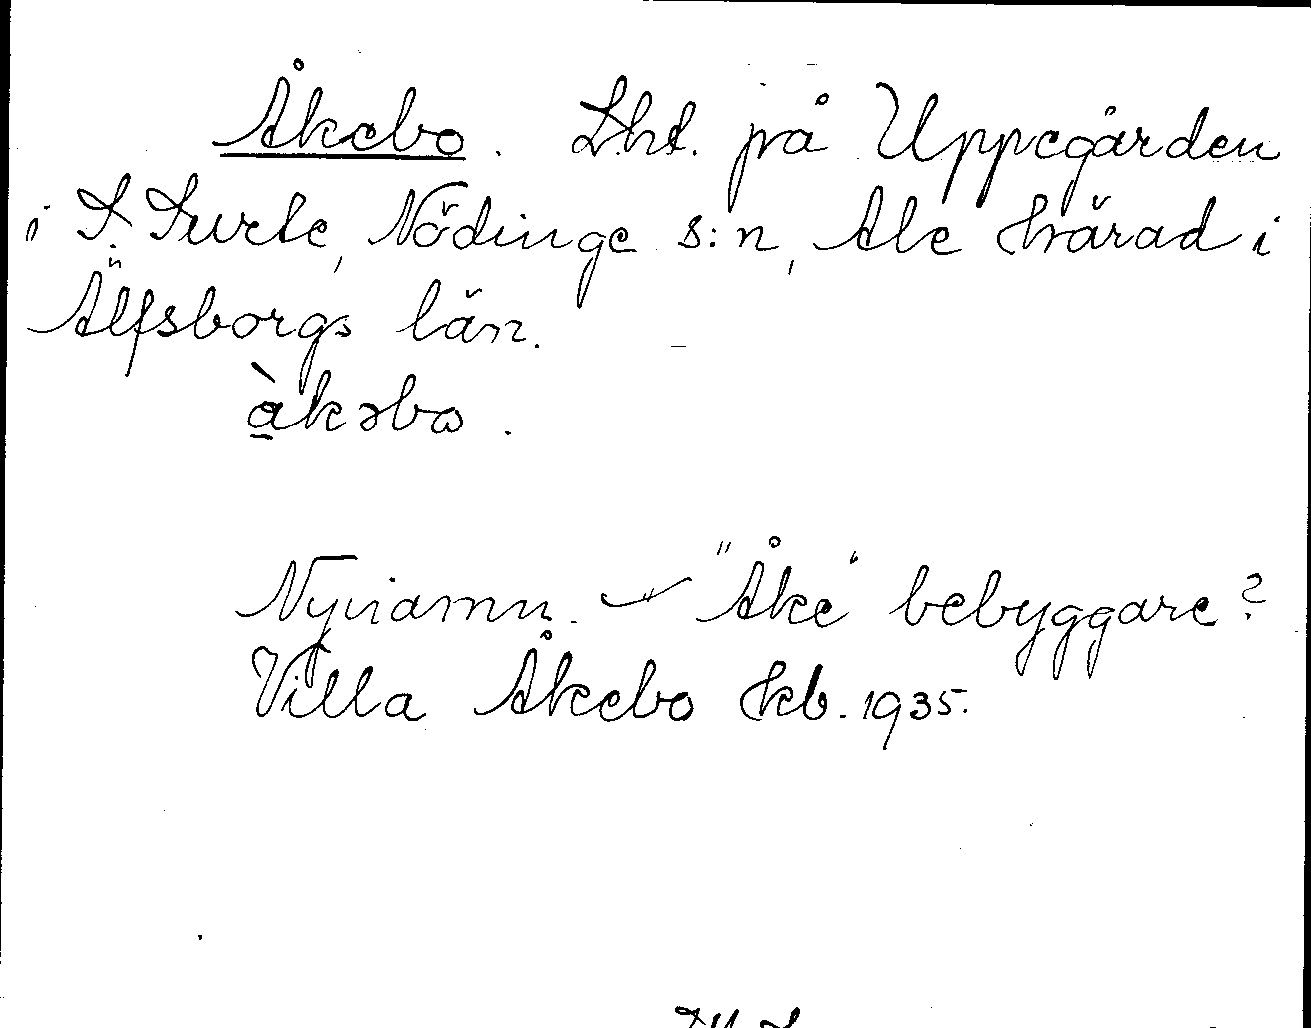 Åkebo. Lht. på Uppegården
i S Surte, Nödinge s:n, Ale härad i
Älfsborgs län.
à̱kəbω.
Nynamn. "Åke" bebyggare?
Villa Åkebo kb. 1935.